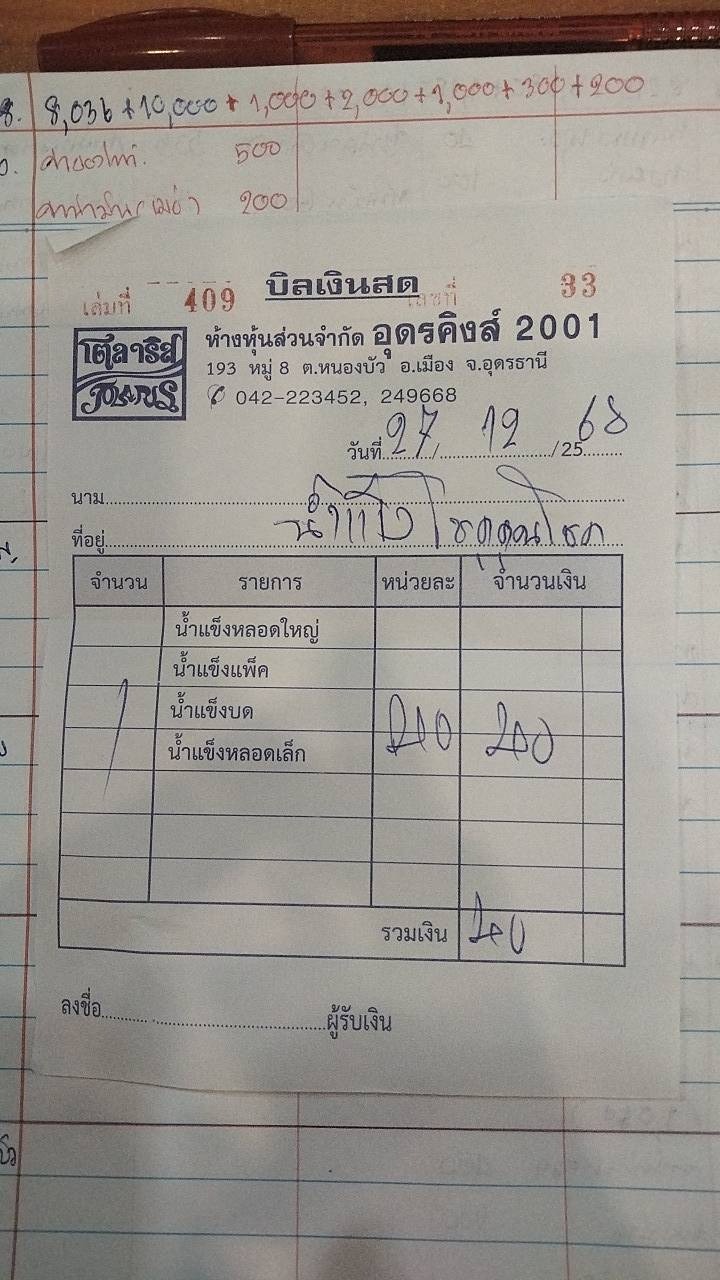 8. 8,036 + 10,000 + 1,000 + 2,000 + 1,000 + 300 + 200
500
200
บิลเงินสด
เล่มที่ 409 เลขที่ 33
โตลาริส
POLARIS
ห้างหุ้นส่วนจำกัด อุดรคิงส์ 2001
193 หมู่ 8 ต.หนองบัว อ.เมือง จ.อุดรธานี
042-223452, 249668
วันที่ 27 / 12 / 25 68
นาม
ที่อยู่ น้ำแข็ง โชคคูณโชค
จำนวน รายการ หน่วยละ จำนวนเงิน
น้ำแข็งหลอดใหญ่
น้ำแข็งแพ็ค
น้ำแข็งบด
1 น้ำแข็งหลอดเล็ก
รวมเงิน
ลงชื่อ ผู้รับเงิน